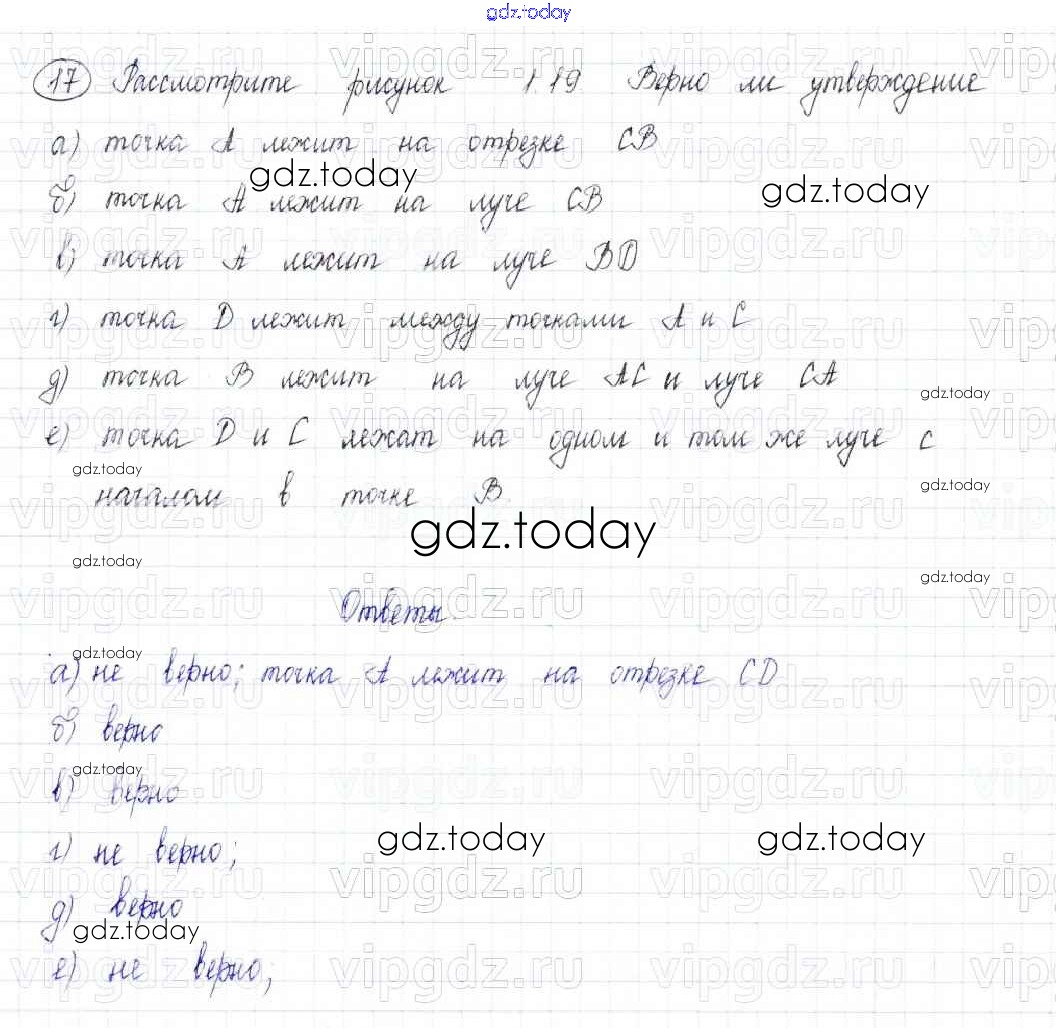 gdz.today
17 Рассмотрите рисунок 1.19 Верно ли утверждение
а) точка А лежит на отрезке СВ
gdz.today gdz.today
б) точка А лежит на луче СВ
в) точка А лежит на луче BD
г) точка D лежит между точками А и С
д) точка В лежит на луче АС и луче СА
gdz.today
е) точка D и С лежат на одном и том же луче с
gdz.today
началом в точке В.
gdz.today
gdz.today
gdz.today
gdz.today
Ответы.
gdz.today
а) не верно; точка А лежит на отрезке CD
б) верно
gdz.today
в) верно
г) не верно;
gdz.today gdz.today
д) верно
gdz.today
е) не верно;
vipgdz.ru